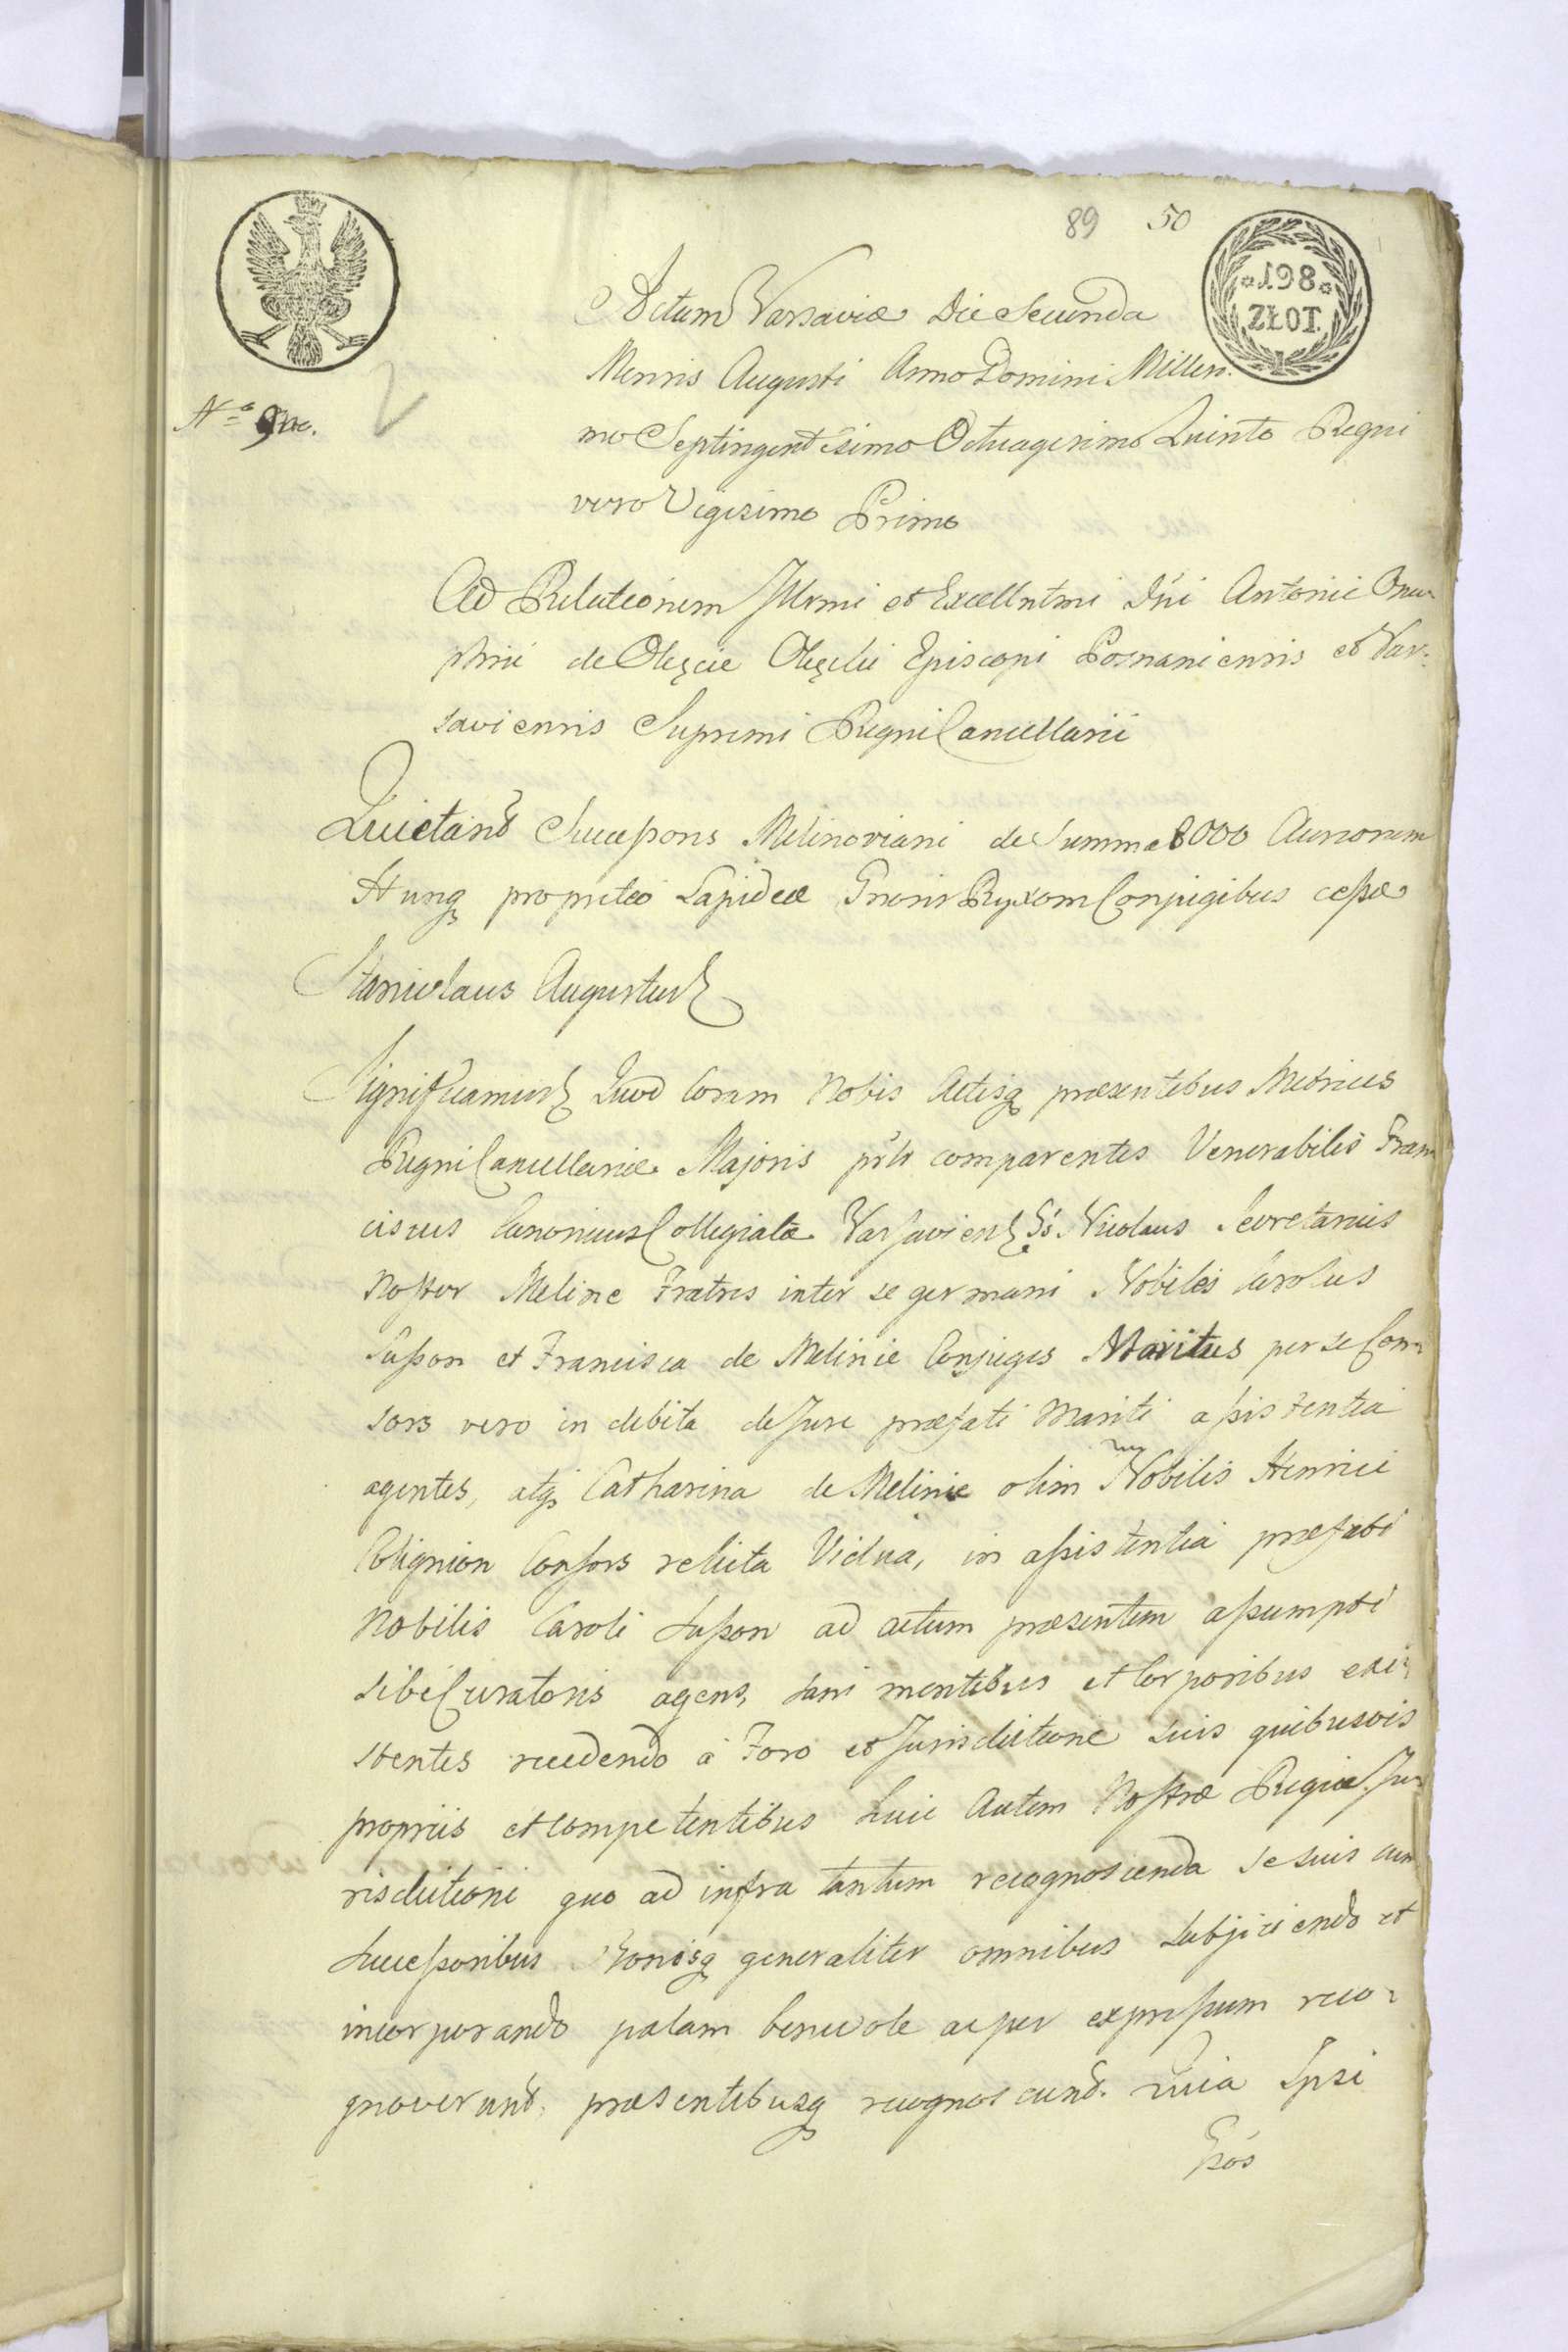 89 50
198
ZŁOT.
Actum Varsaviæ Die Secunda
Mensis Augusti Anno Domini Millesi-
mo Septingentesimo Octuagesimo Quinto Regni
vero Vigesimo Primo
Nº 9no.
Ad Relationem Illrmi et Excellntmi Dni Antonii Onu-
phrii de Okęcie Okęcki Episcopi Posnaniensis et Var-
saviensis Supremi Regni Cancellarii
Quietand Successors Melinoviani de Summa 8000 Aureorum
Hung propriet Lapideæ Gnosis Ryxom Conjugibus cessæ
Stanislaus Augustus
Significamus Quod Coram Nobis Actisq præsentibus Metrices
Regni Cancellariæ Majoris prsntr comparentes Venerabilis Fran
ciscus Canonicus Collegiatæ Varsavien Gs Nicolaus Secretarius
Noster Meline Fratres inter se germani Nobiles Carolus
Lasson et Francisca de Melinie Conjuges Maritus per se Con-
sors vero in debita de Jure præfati Mariti assistentia
agentes, atq Catharina de Melinie olim Nobilis Henrici
Colignion Consors relicta Vidua, in assistentia præfati
Nobilis Caroli Lasson ad actum præsentem assumpti
sibi Curatoris agens, sani mentibus et Corporibus exi-
stentes recedendo á Foro et Jurisdictione suis quibusvis
propriis et competentibus huic Autem Nostræ Regiæ Ju-
risdictioni quo ad infra tantum recognoscenda se suis cum
Successoribus Bonisq generaliter omnibus Subjiciendo et
incorporando palam benevole ac per expressum reco-
gnoverunt. præsentibusq recognoscunt. Quia Ipsi
Gsos